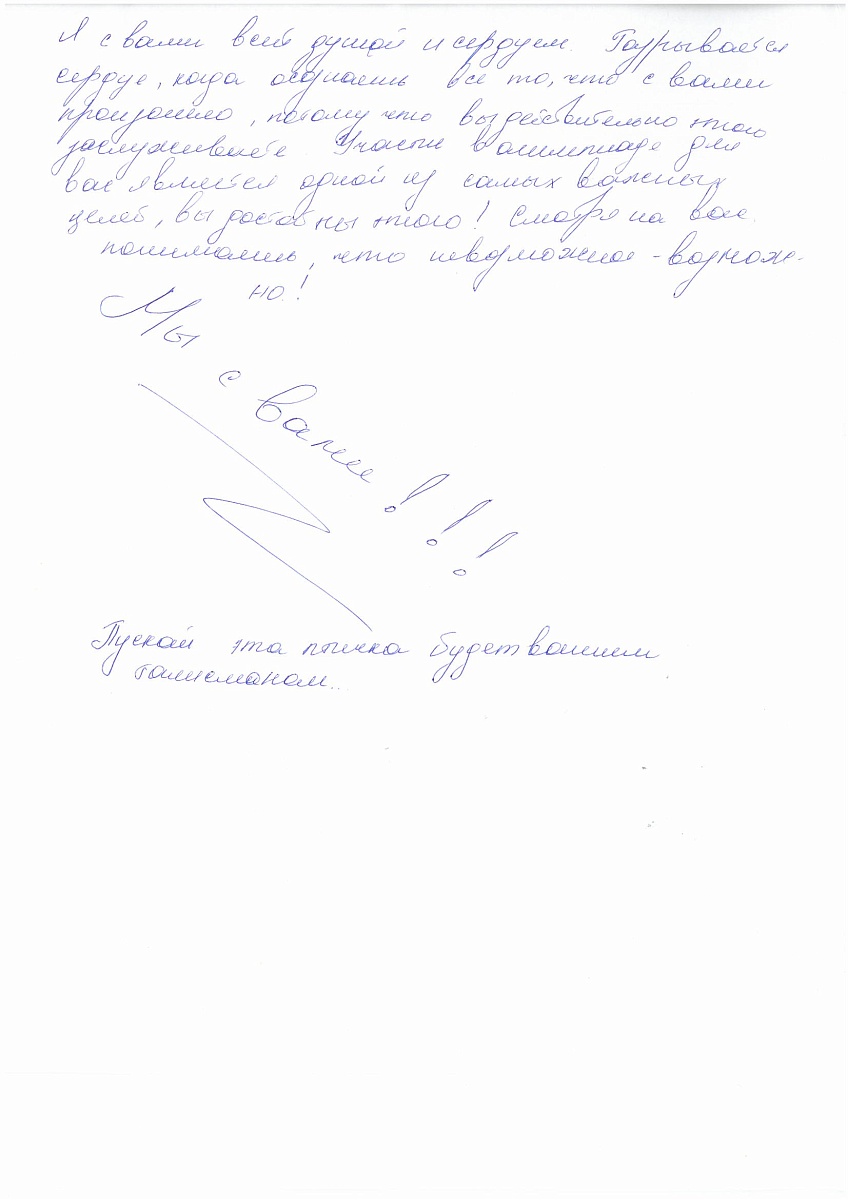 Я с вами всей душой и сердцем. Разрывается
сердце, когда осознаешь все то, что с вами
произошло, потому что вы действительно этого
заслуживаете. Участи в олимпиаде для
вас является одной из самых важных
целей, вы достойны этого! Смотря на вас
понимаешь, что невозможное - возмож-
но!
Мы с вами!!!
Пускай эта птичка будет вашим
талисманом..